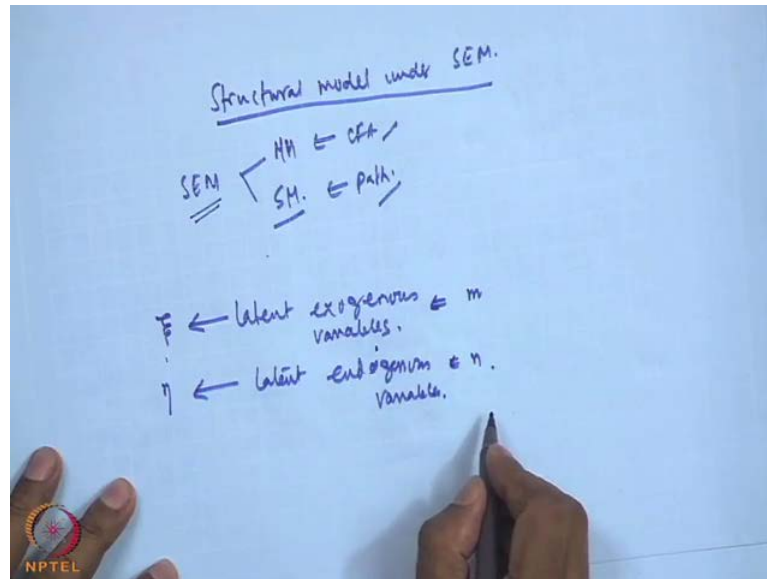 Structural model under SEM.
MM ⇐ CFA
SEM
SM. ⇐ path.
ξ ← latent exogenous ⇐ m
variables.
η ← latent endogenous ⇐ n.
variables.
NPTEL